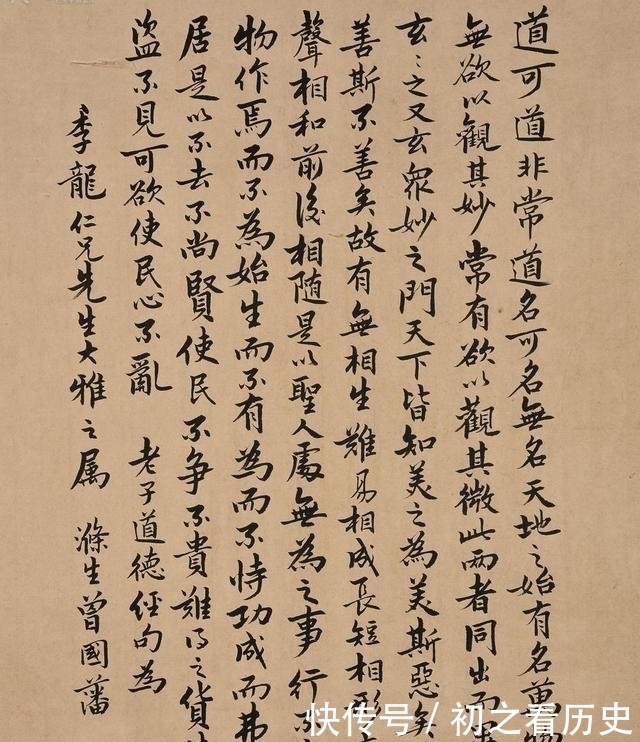 道可道非常道名可名無名天地之始有名萬物
無欲以觀其妙常有欲以觀其微此兩者同出而
玄〻之又玄眾妙之門天下皆知美之為美斯惡矣
善斯不善矣故有無相生難易相成長短相形
聲相和前後相隨是以聖人處無為之事行不
物作焉而不為始生而不有為而不恃功成而弗
居是以不去不尚賢使民不争不貴難得之貨
盜不見可欲使民心不亂 老子道德經句為
季龍仁兄先生大雅之属 滌生曾國藩
快传号 / 初之看历史